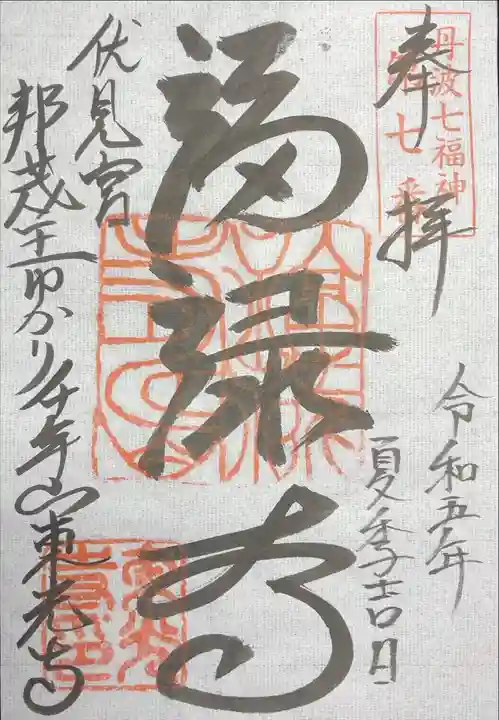 奉拝
丹波七福神
第七番
令和五年
夏季吉日
福禄寿
伏見宮
邦茂王ゆかり千年山東光寺